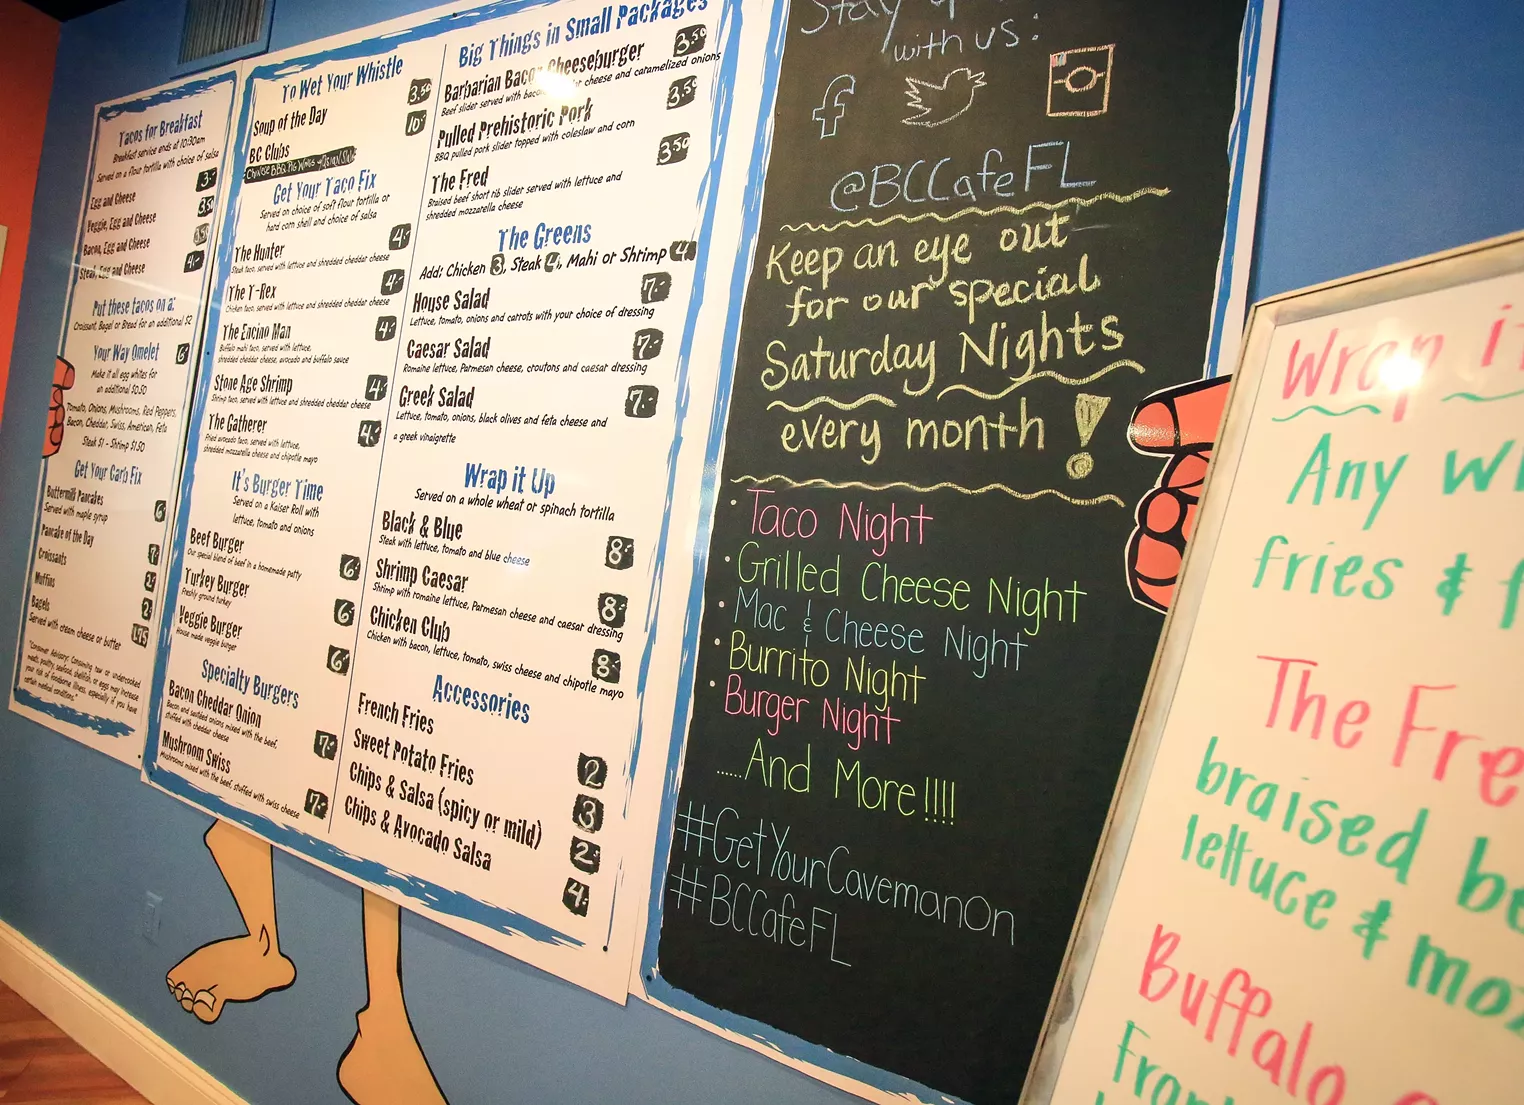 Tacos for Breakfast
Breakfast service ends at 10:30am
Served on a flour tortilla with choice of salsa
Egg and Cheese 3.-
Veggie, Egg and Cheese 3.50
Bacon, Egg and Cheese 3.50
Steak, Egg and Cheese 4.-
Put these tacos on a:
Croissant, Bagel or Bread for an additional $2
Your Way Omelet 6-
Make it all egg whites for
an additional $0.50
Tomato, Onions, Mushrooms, Red Peppers,
Bacon, Cheddar, Swiss, American, Feta
Steak $1 - Shrimp $1.50
Get Your Carb Fix
Buttermilk Pancakes
Served with maple syrup 6-
Pancake of the Day 7-
Croissants 2-
Muffins 2-
Bagels 1.75
Served with cream cheese or butter
"Consumer Advisory: Consuming raw or undercooked
meats, poultry, seafood, shellfish, or eggs may increase
your risk of foodborne illness, especially if you have
certain medical conditions."
To Wet Your Whistle
Soup of the Day 3.50
BC Clubs 10-
Get Your Taco Fix
Served on choice of soft flour tortilla or
hard corn shell and choice of salsa
The Hunter 4-
Steak taco, served with lettuce and shredded cheddar cheese
The T-Rex 4-
Chicken taco, served with lettuce and shredded cheddar cheese
The Encino Man 4-
Buffalo mahi taco, served with lettuce,
shredded cheddar cheese, avocado and buffalo sauce
Stone Age Shrimp 4-
Shrimp taco, served with lettuce and shredded cheddar cheese
The Gatherer 4-
Fried avocado taco, served with lettuce,
shredded mozzarella cheese and chipotle mayo
It's Burger Time
Served on a Kaiser Roll with
lettuce, tomato and onions
Beef Burger 6-
Our special blend of beef in a homemade patty
Turkey Burger 6-
Freshly ground turkey
Veggie Burger 6-
House made veggie burger
Specialty Burgers
Bacon Cheddar Onion 7-
Bacon and seared onions mixed with the beef,
stuffed with cheddar cheese
Mushroom Swiss 7-
Mushrooms mixed with the beef, stuffed with swiss cheese
Big Things in Small Packages
Barbarian Bacon Cheeseburger 3.50
Beef slider served with cheese and caramelized onions
Pulled Prehistoric Pork 3.50
BBQ pulled pork slider topped with coleslaw and corn
The Fred 3.50
Braised beef short rib slider served with lettuce and
shredded mozzarella cheese
The Greens
Add: Chicken 3, Steak 4, Mahi or Shrimp 4
House Salad 7-
Lettuce, tomato, onions and carrots with your choice of dressing
Caesar Salad 7-
Romaine lettuce, Parmesan cheese, croutons and caesar dressing
Greek Salad 7-
Lettuce, tomato, onions, black olives and feta cheese and
a greek vinaigrette
Wrap it Up
Served on a whole wheat or spinach tortilla
Black & Blue 8-
Steak with lettuce, tomato and blue cheese
Shrimp Caesar 8-
Shrimp with romaine lettuce, Parmesan cheese and caesar dressing
Chicken Club 8-
Chicken with bacon, lettuce, tomato, swiss cheese and chipotle mayo
Accessories
French Fries 2
Sweet Potato Fries 3
Chips & Salsa (spicy or mild) 2-
Chips & Avocado Salsa 4-
Stay
with us:
@BCCafeFL
Keep an eye out
for our special
Saturday Nights
every month!
• Taco Night
• Grilled Cheese Night
• Mac & Cheese Night
• Burrito Night
• Burger Night
.....And More!!!!
#GetYourCavemanOn
#BCCafeFL
Wrap it
Any
fries &
The
braised
lettuce &
Buffalo